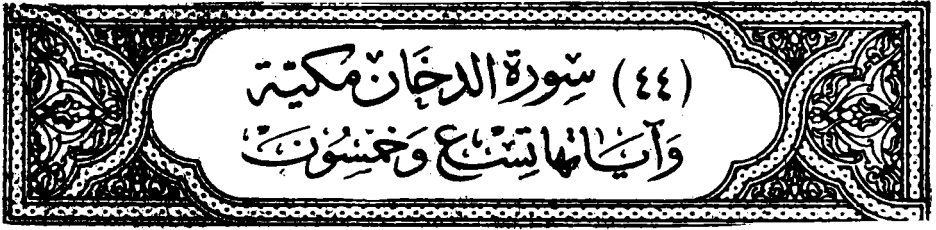 (٤٤) سورة الدخان مكية
وآياتها تسع وخمسون